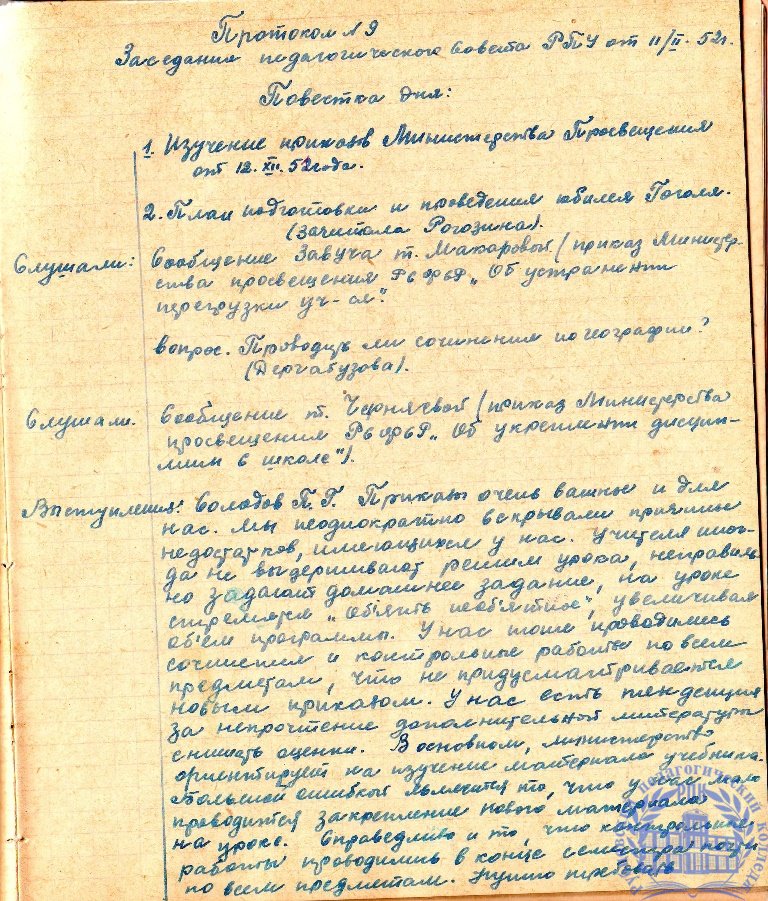 Протокол №9
Заседания педагогического Совета РПУ от 11/II. 52г.
Повестка дня:
1. Изучение приказов Министерства Просвещения
от 12. XII. 52 года.
2. План подготовки и проведения юбилея Гоголя.
(Зачитала Рогозина).
Слушали: Сообщение Завуча т. Макаровой (приказ Министер-
ства просвещения РСФСР „Об устранении
перегрузки уч-ся".
Вопрос. Проводить ли сочинения по географии?
Слушали. Сообщение т. Черняевой (приказ Министерства
просвещения РСФСР „Об укреплении дисцип-
лины в школе").
Выступления: Солодов П. Г. Приказы очень важные и для
нас. Мы неоднократно вскрывали причины
недостатков, имеющихся у нас. Учителя иног-
да не выдерживают режим урока, неправиль-
но задают домашнее задание, на уроке
стремятся „Об'ять необ'ятное", увеличивая
об'ём программы. У нас тоже проводились
сочинения и контрольные работы по всем
предметам, что не придусматривается
новым приказом. У нас есть тенденция
за непрочтение дополнительной литературы
снижать оценки. В основном, министерство
ориентирует на изучение материала учебника.
Большой ошибкой является то, что у нас мало
проводится закрепление нового материала
на уроке. Справедливо и то, что контрольные
работы проводились в конце семестра почти
по всем предметам. Нужно требовать
педагогический колледж